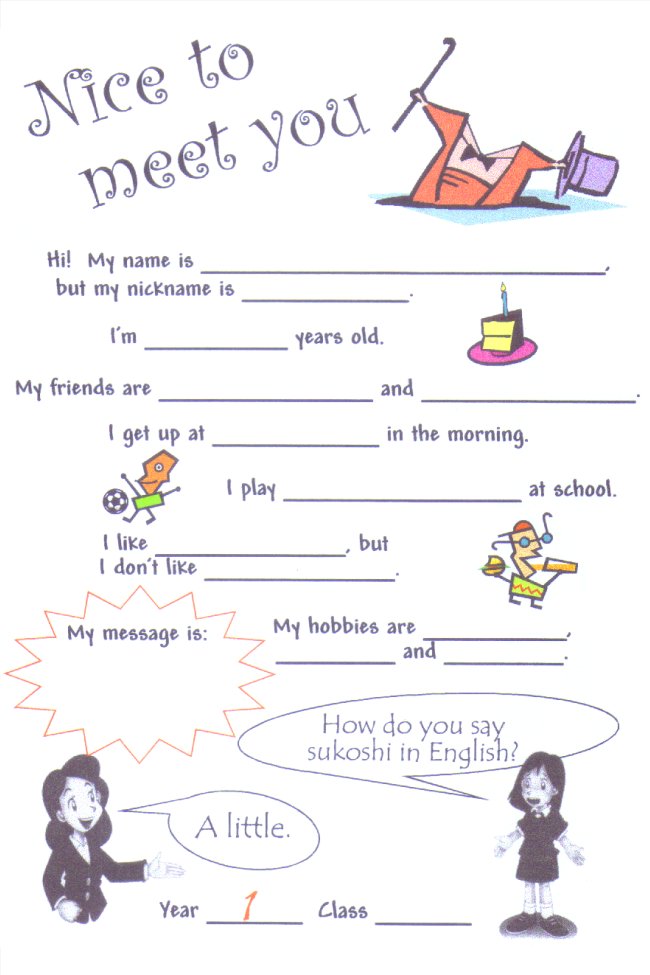 Nice to
meet you
Hi! My name is ____________________,
but my nickname is __________.
I'm __________ years old.
My friends are __________ and __________.
I get up at __________ in the morning.
I play __________ at school.
I like __________, but
I don't like __________.
My message is:
My hobbies are __________,
__________ and __________.
How do you say
sukoshi in English?
A little.
Year 1 Class ______